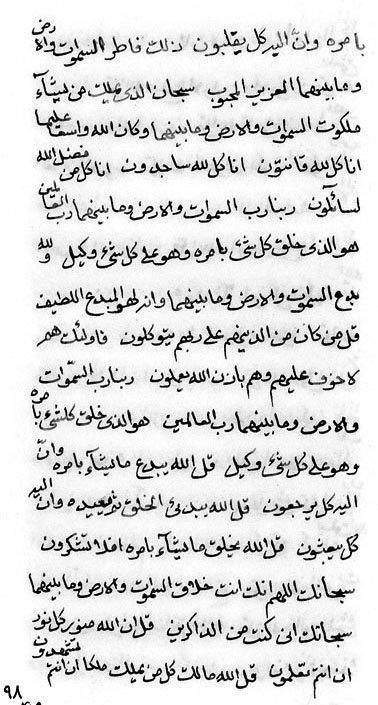 بامره وانّ اليه كل يقلبون ذلك فاطر السموات والارض
وما بينهما العزيز المحبوب سبحان الذي يملك من يشآء
ملكوت السموات والارض وما بينهما وكان الله واسعا عليما
انا كل لله قانتون انا كل لله ساجدون انا كل من فضل الله
لسائلون ربنا رب السموات والارض وما بينهما رب العالمين
هو الذي خلق كل شئ بامره وهو على كل شئ وكيل ولله
بدع السموات والارض وما بينهما وانه لهو المبدع اللطيف
قل من كان من الذينهم على ربهم يتوكلون فاولئك هم
لا خوف عليهم وهم باذن الله يعملون ربنا رب السموات
والارض وما بينهما رب العالمين هو الذي خلق كلشئ بامره
وهو على كل شئ وكيل قل الله يبدع ما يشآء بامره وانّ
اليه كل يرجعون قل الله يبدئ الخلق ثم يعيده وان اليه
كل يبعثون قل الله يخلق ما يشآء بامره افلا تشكرون
سبحانك اللهم انك انت خلاق السموات والارض وما بينهما
سبحانك اني كنت من الذاكرين قل ان الله منور كل نور
ان انتم تعلمون قل الله مالك كل من يملك ملكا ان انتم تشهدون
٩٨